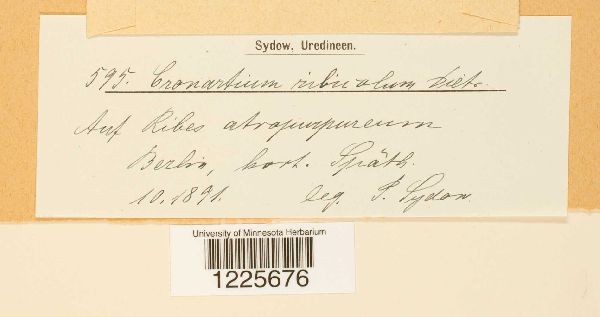 Sydow. Uredineen.
595. Cronartium ribicolum Diet.
Auf Ribes atropurpureum
Berlin, hort. Späth.
10.1891. leg. P. Sydow.
University of Minnesota Herbarium
1225676